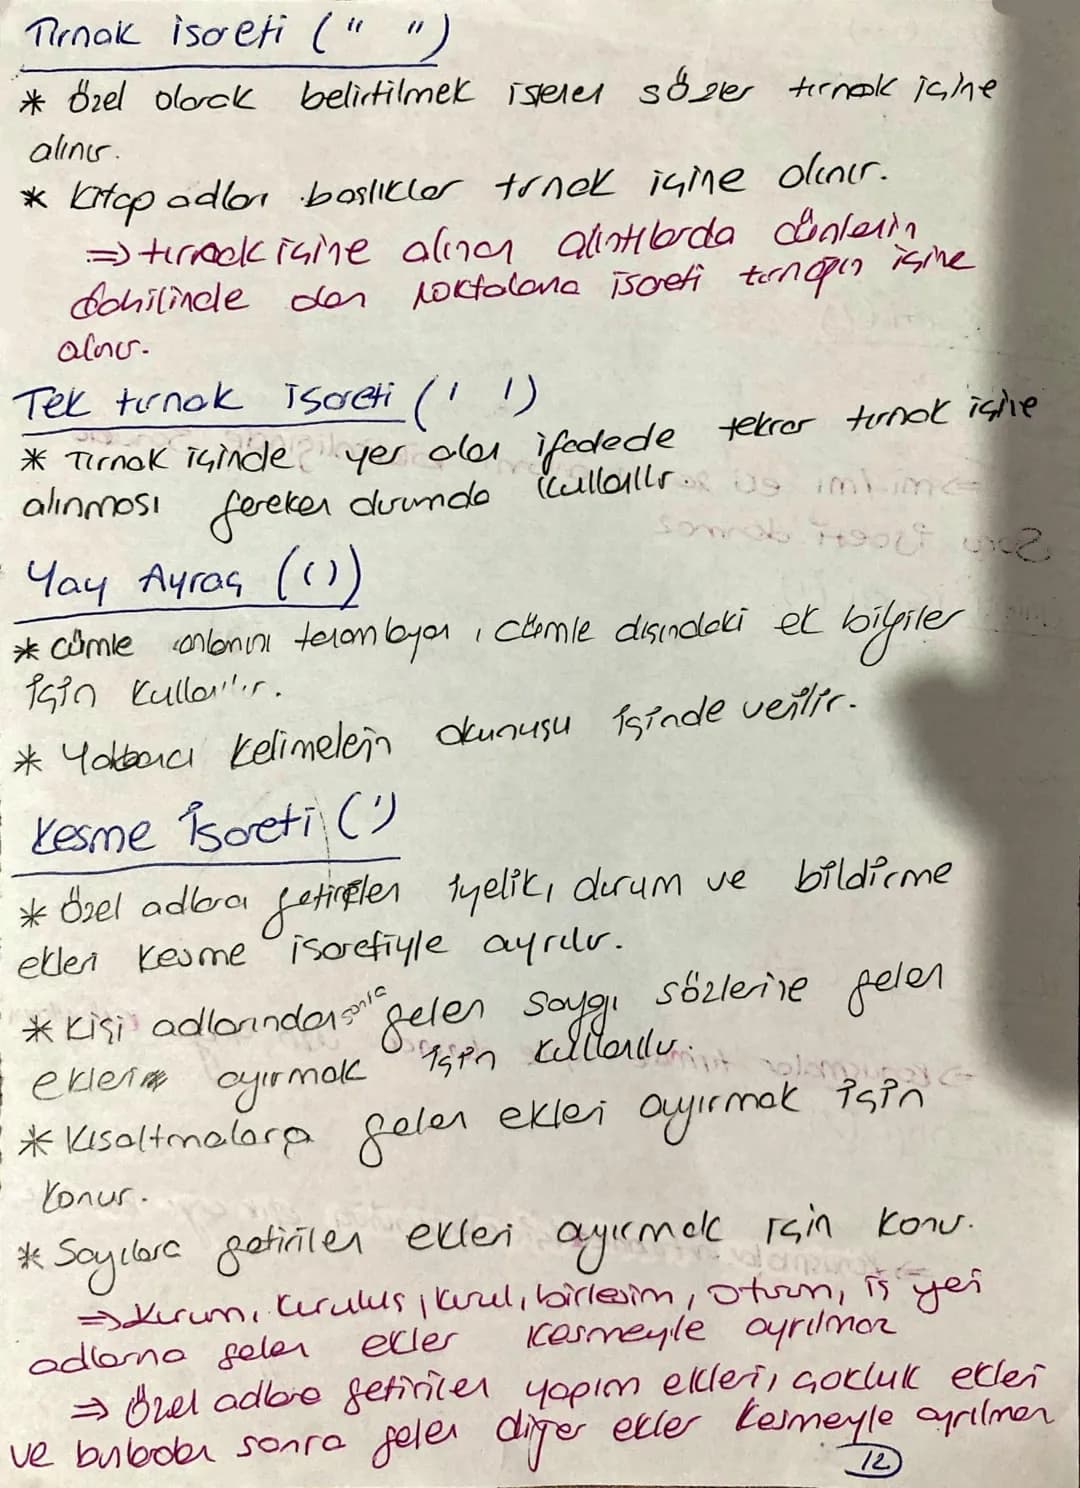 Tırnak işareti (" ")
* Özel olarak belirtilmek istenen sözler tırnak içine
alınır.
* Kitap adları başlıklar tırnak içine alınır.
⇒ tırnak içine alınan alıntılarda cümlenin
dahilinde olan noktalama işareti tırnağın içine
alınır.
Tek tırnak işareti (' ')
* Tırnak içinde yer alan ifadede tekrar tırnak içine
alınması gereken durumda kullanılır.
Yay Ayraç (())
* Cümle anlamını tamamlayan, cümle dışındaki ek bilgiler
için kullanılır.
* Yabancı kelimelerin okunuşu içinde verilir.
Kesme İşareti (')
* Özel adlara getirilen iyelik, durum ve bildirme
ekleri kesme işaretiyle ayrılır.
* Kişi adlarından sonra gelen saygı sözlerine gelen
ekleri ayırmak için kullanılır.
* Kısaltmalara gelen ekleri ayırmak için
konur.
* Sayılara getirilen ekleri ayırmak için konur.
⇒ Kurum, kuruluş, kurul, birleşim, oturum, iş yeri
adlarına gelen ekler kesmeyle ayrılmaz
⇒ Özel adlara getirilen yapım ekleri, çokluk ekleri
ve bunlardan sonra gelen diğer ekler kesmeyle ayrılmaz
12